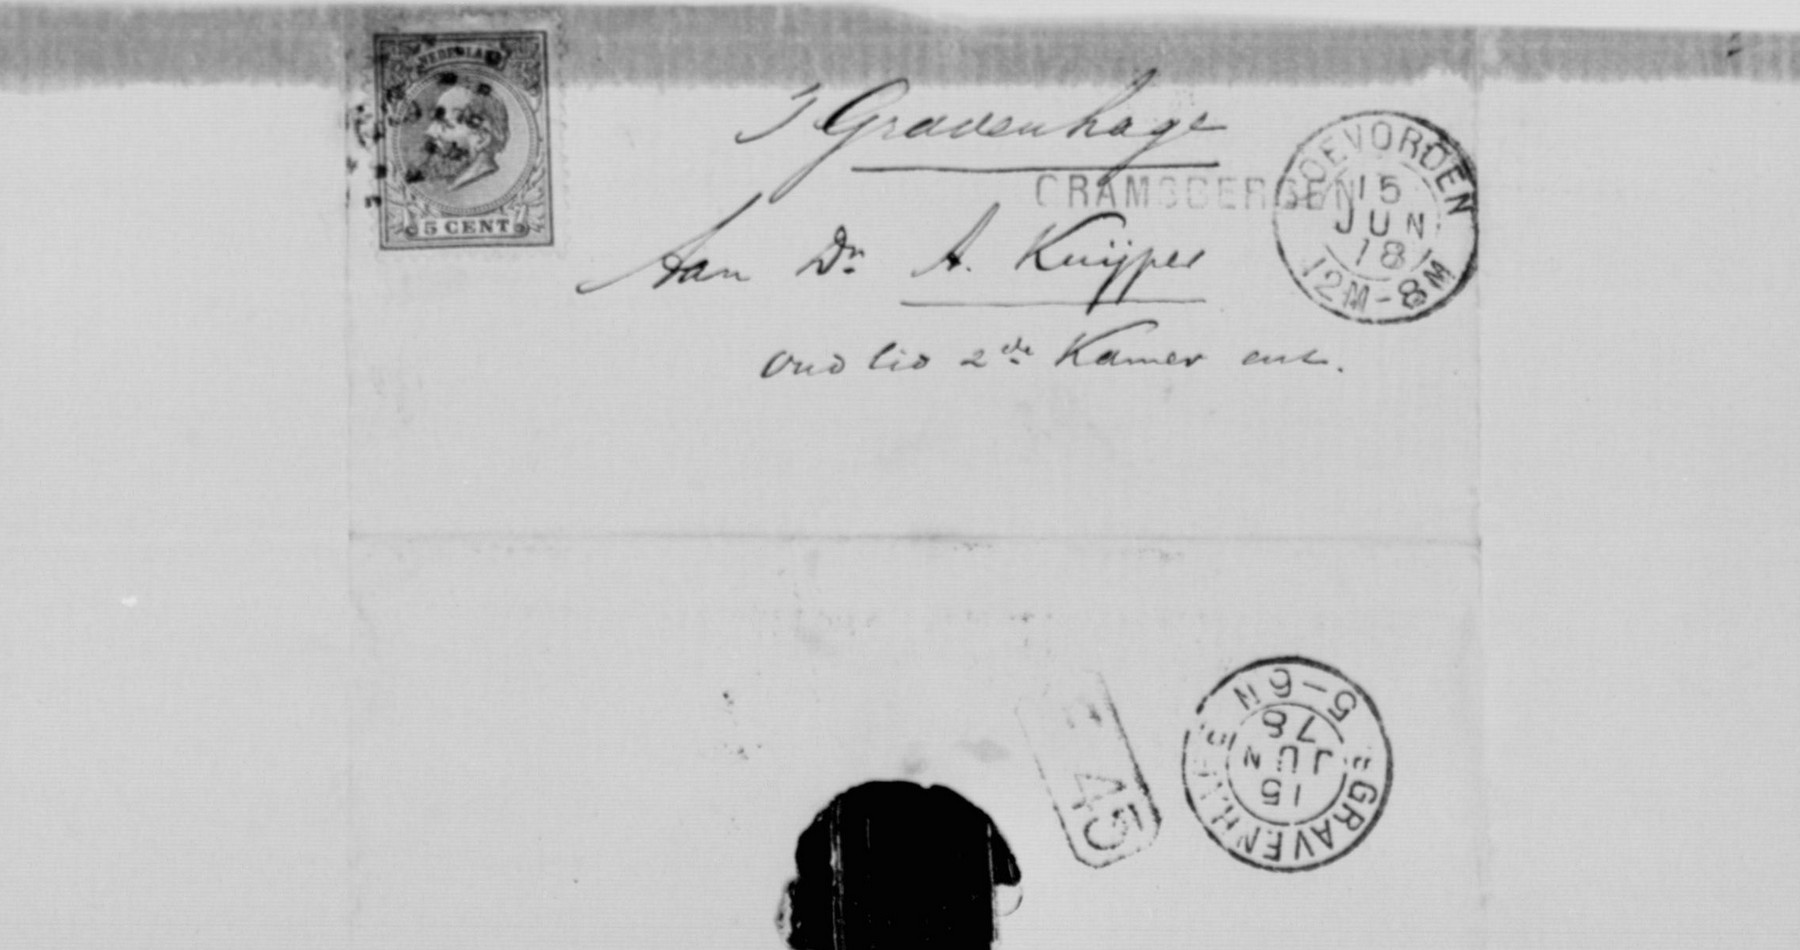 NEDERLAND
5 CENT
's Gravenhage
GRAMSBERGEN
COEVORDEN
15
JUN
78
12M-8M
Aan Dr. A. Kuijper
oud lid 2de Kamer enz.
5-6N
78
JUN
15
'S GRAVENHAGE
45